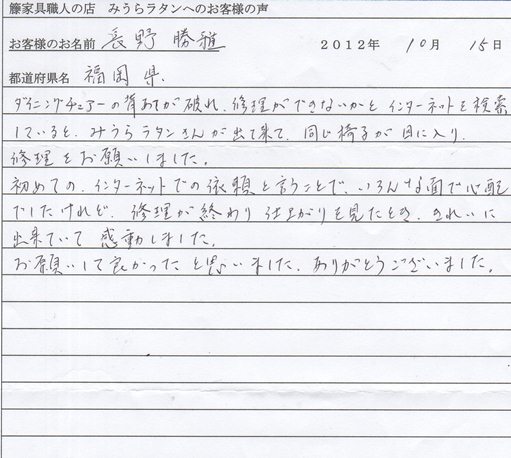 籐家具職人の店　みうらラタンへのお客様の声
お客様のお名前　長野 勝雅　2012年　10月　15日
都道府県名　福岡県.
ダイニングチェアーの背あてが破れ、修理ができないかと インターネットを検索
していると、みうらラタンさんが出て来て、同じ椅子が目に入り、
修理をお願いしました。
初めての、インターネットでの依頼と言うことで、いろんな面で心配
でしたけれど、修理が終わり 仕上がりを見たとき、きれいに
出来ていて 感動しました。
お願いして良かったと思いました、ありがとうございました。